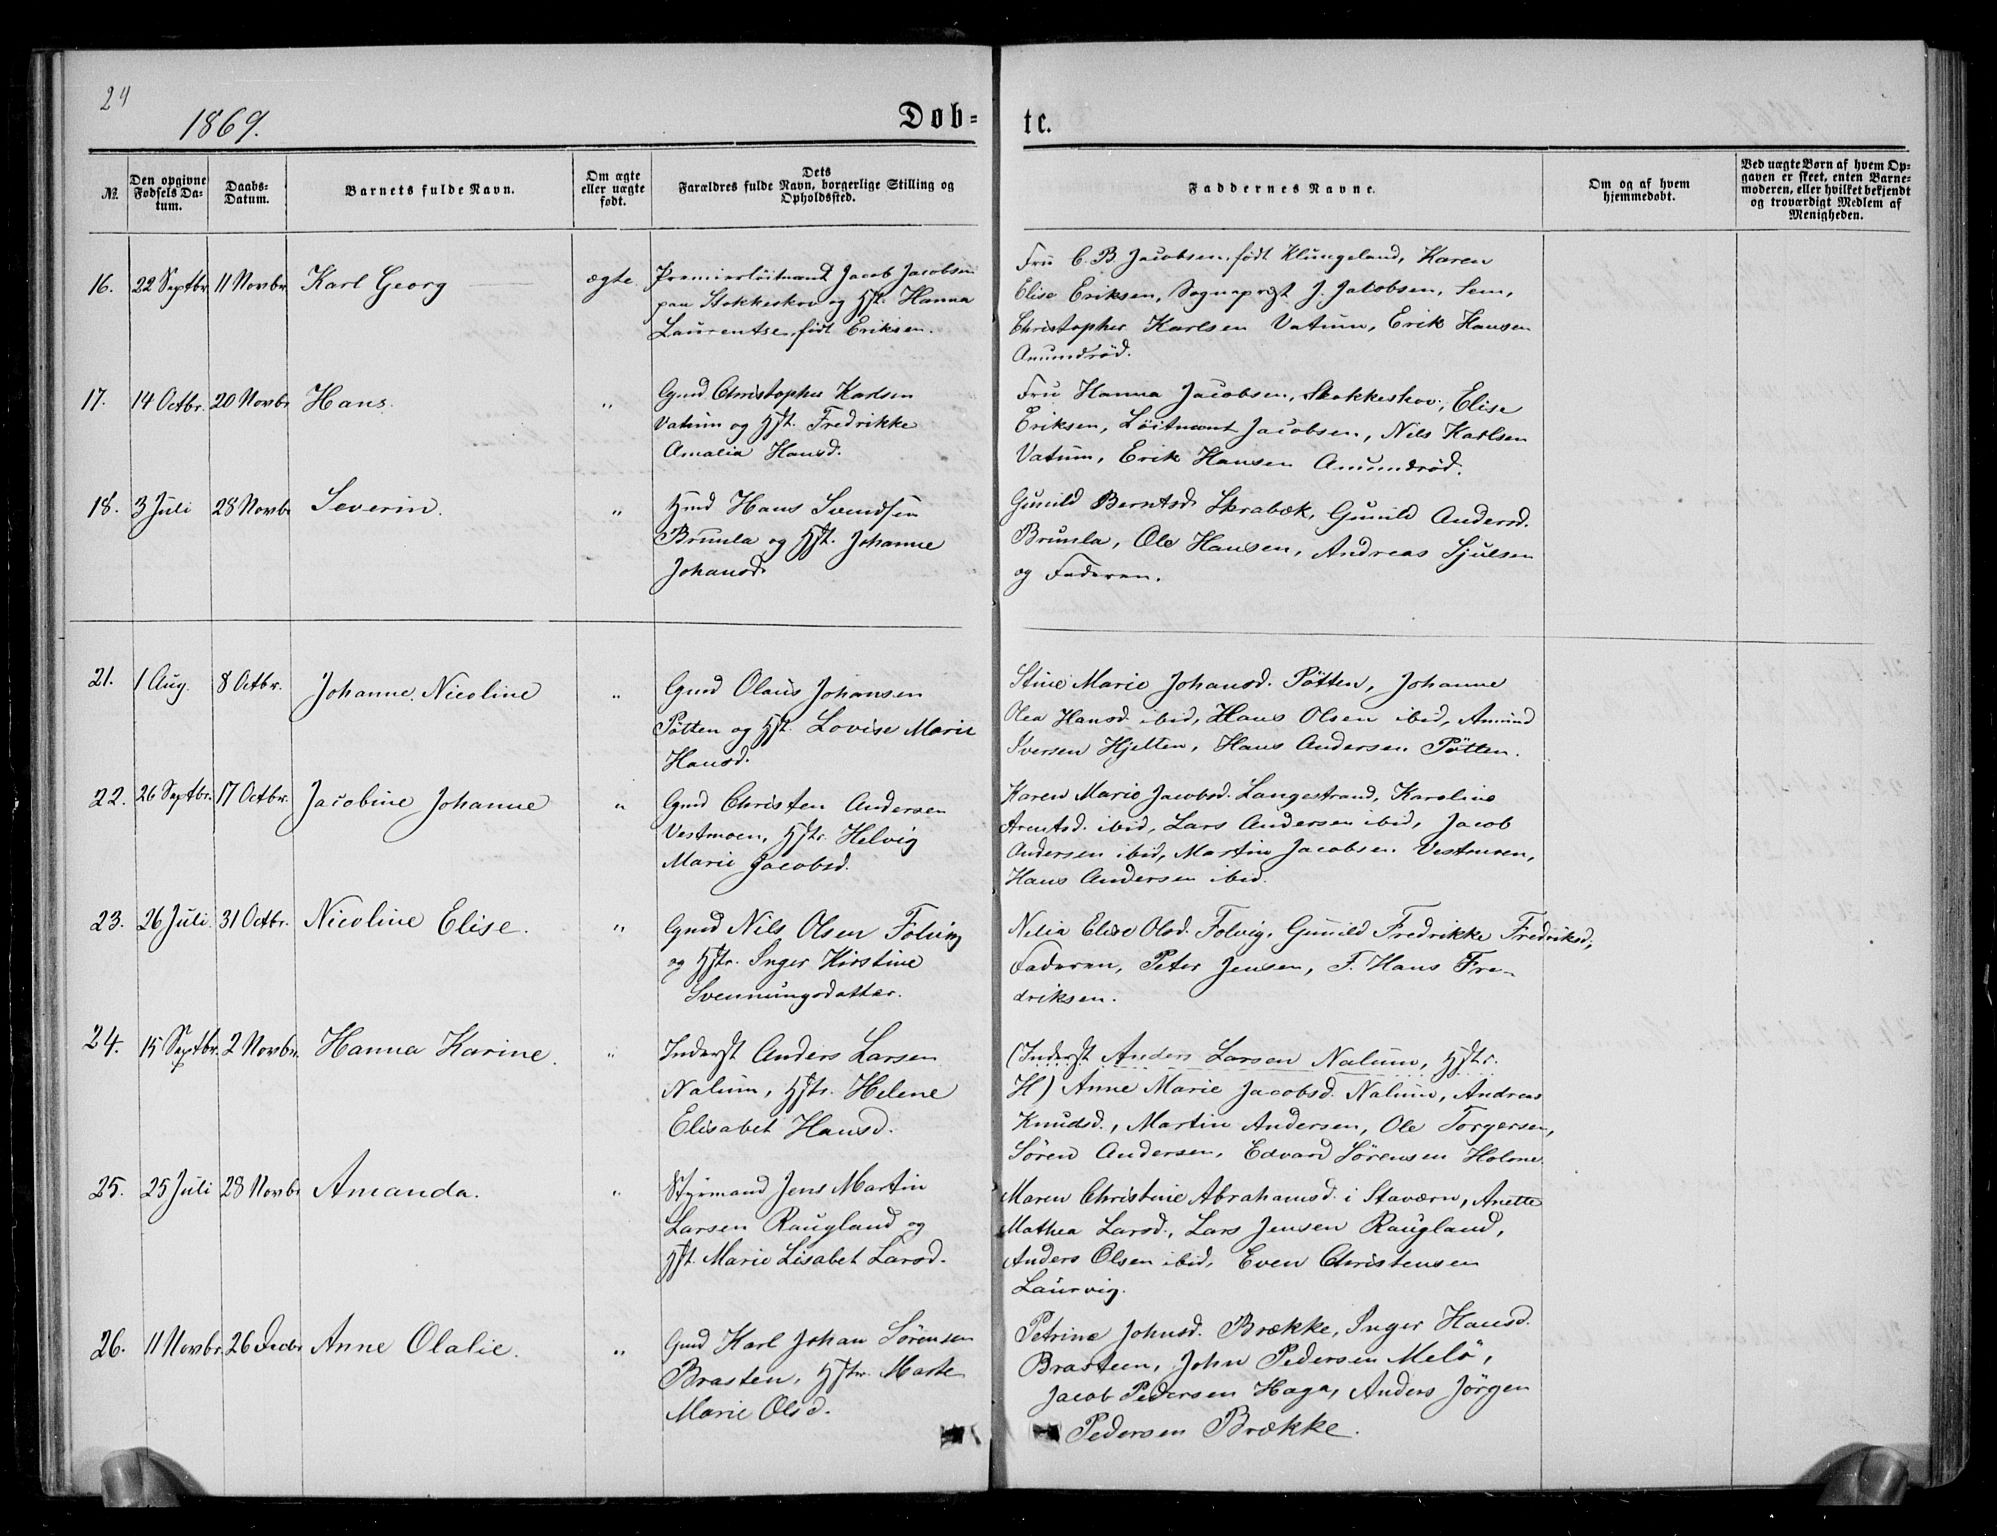 24
1869.
Døb-
te.
№.
Den opgivne
Fødsels Da-
tum.
Daabs-
Datum.
Barnets fulde Navn.
Om ægte
eller uægte
født.
Dets
Forældres fulde Navn, borgerlige Stilling og
Opholdssted.
Faddernes Navne.
Om og af hvem
hjemmedøbt.
Ved uægte Børn af hvem Op-
gaven er skeet, enten Barne-
moderen, eller hvilket bekjendt
og troværdigt Medlem af
Menigheden.
16. 22 Septbr. 11 Novbr. Karl Georg ægte
Premierløitnant Jacob Jacobsen
paa Stokkeskov og Hst. Hanna
Laurentse, født Eriksen.
Fru C. B. Jacobsen, født Klungeland, Karen
Elise Eriksen, Sogneprest J. Jacobsen, Sem,
Christopher Karlsen Vatum, Erik Hansen
Anumdrød.
17. 14 Octbr. 20 Novbr Hans. "
Gmd Christopher Karlsen
Vatum og Hst. Fredrikke
Amalia Hansd.
Fru Hanna Jacobsen, Stokkeskov, Elise
Eriksen, Løitnant Jacobsen, Nils Karlsen
Vatum, Erik Hansen Anumdrød.
18. 3 Juli 28 Novbr Severin. "
Hmd Hans Svendsen
Brunla og Hst. Johanne
Johansd.
Gunild Berntsd Skrabæk, Gunild Andersd.
Brunla, Ole Hansen, Andreas Sjulsen
og Faderen.
21. 1 Aug. 8 Octbr. Johanne Nicoline "
Gmd Olaus Johansen
Pøtten og Hst. Lovise Marie
Hansd.
Stine Marie Johansd. Pøtten, Johanne
Olea Hansd. ibid, Hans Olsen ibid, Amund
Iversen Hjelten, Hans Andersen Pøtten.
22. 26 Septbr. 17 Octbr. Jacobine Johanne "
Gmd Christen Andersen
Vestmoen, Hstr. Helvig
Marie Jacobsd.
Karen Marie Jacobsd. Langestrand, Karoline
Arentsd. ibid, Lars Andersen ibid, Jacob
Andersen ibid, Martin Jacobsen Vestmoen,
Hans Andersen ibid.
23. 26 Juli 31 Octbr. Nicoline Elise. "
Gmd Nils Olsen Folvig
og Hstr. Inger Kirstine
Svennungsdatter.
Nilia Elise Olsd. Folvig, Gunild Fredrikke Fredriksd,
Faderen, Peter Jensen, F. Hans Fre-
driksen.
24. 15 Septbr. 2 Novbr. Hanna Karine. "
Inderst Anders Larsen
Nalum, Hstr. Helene
Elisabet Hansd.
(Inderst Anders Larsen Nalum, Hstr.
H) Anne Marie Jacobsd. Nalum, Andrea
Knudsd., Martin Andersen, Ole Torgersen,
Søren Andersen, Edvard Sørensen Holme
25. 25 Juli 28 Novbr Amanda. "
Styrmand Jens Martin
Larsen Raugland og
Hst. Marie Lisabet Larsd.
Maren Christine Abrahamsd. i Staværn, Anette
Mathea Larsd., Lars Jensen Raugland,
Anders Olsen ibid, Even Christensen
Laurvig.
26. 11 Novbr. 26 Decbr Anne Olalie. "
Gmd Karl Johan Sørensen
Brasten, Hstr. Marte
Marie Olsd.
Petrine Johnsd. Brække, Inger Hansd.
Brasteen, John Pedersen Melø,
Jacob Pedersen Haga, Anders Jørgen
Pedersen Brække.